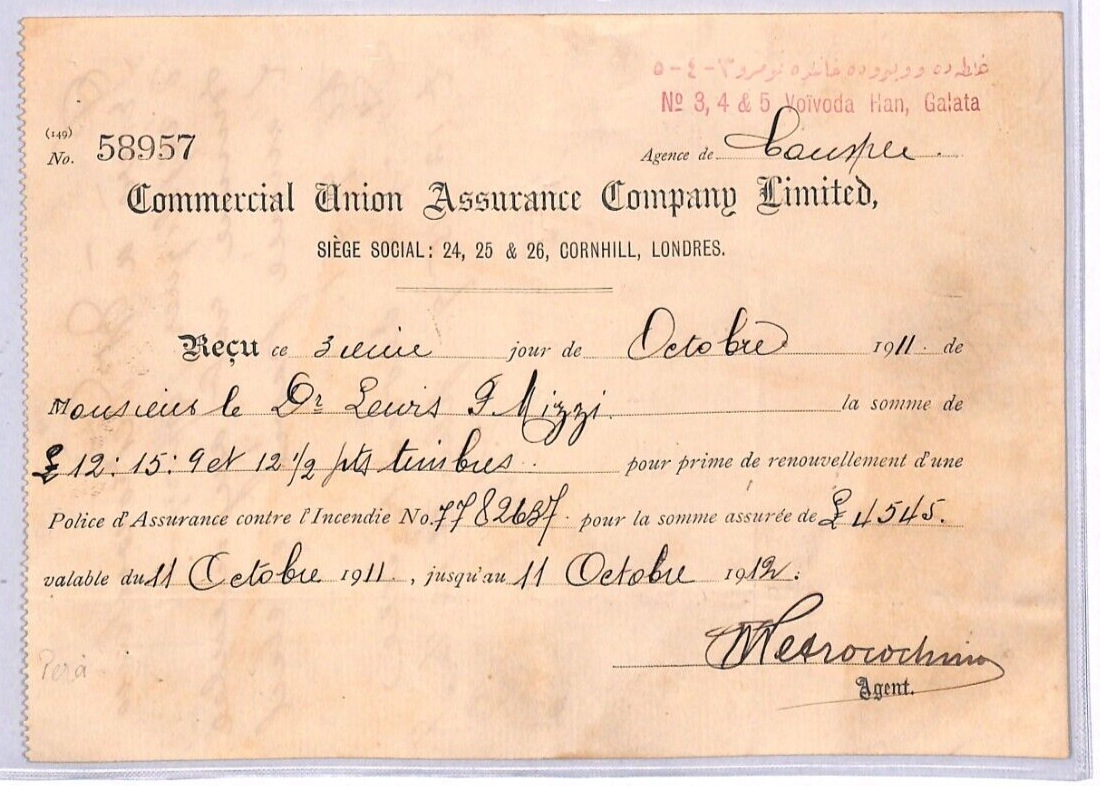 غلطه ده وويوده خاننده نومرو ٣-٤-٥
Nº 3, 4 & 5 Voïvoda Han, Galata
(149)
No. 58957
Agence de Constple
Commercial Union Assurance Company Limited,
SIÈGE SOCIAL: 24, 25 & 26, CORNHILL, LONDRES.
Reçu ce 3 eme jour de Octobre 1911 de
Monsieur le Dr Lewis F Mizzi la somme de
£ 12 : 15 : 9 et 12 ½ pts timbres pour prime de renouvellement d'une
Police d'Assurance contre l'Incendie No. 7782637 pour la somme assurée de £ 4545.
valable du 11 Octobre 1911, jusqu'au 11 Octobre 1912.
Agent.
Pera